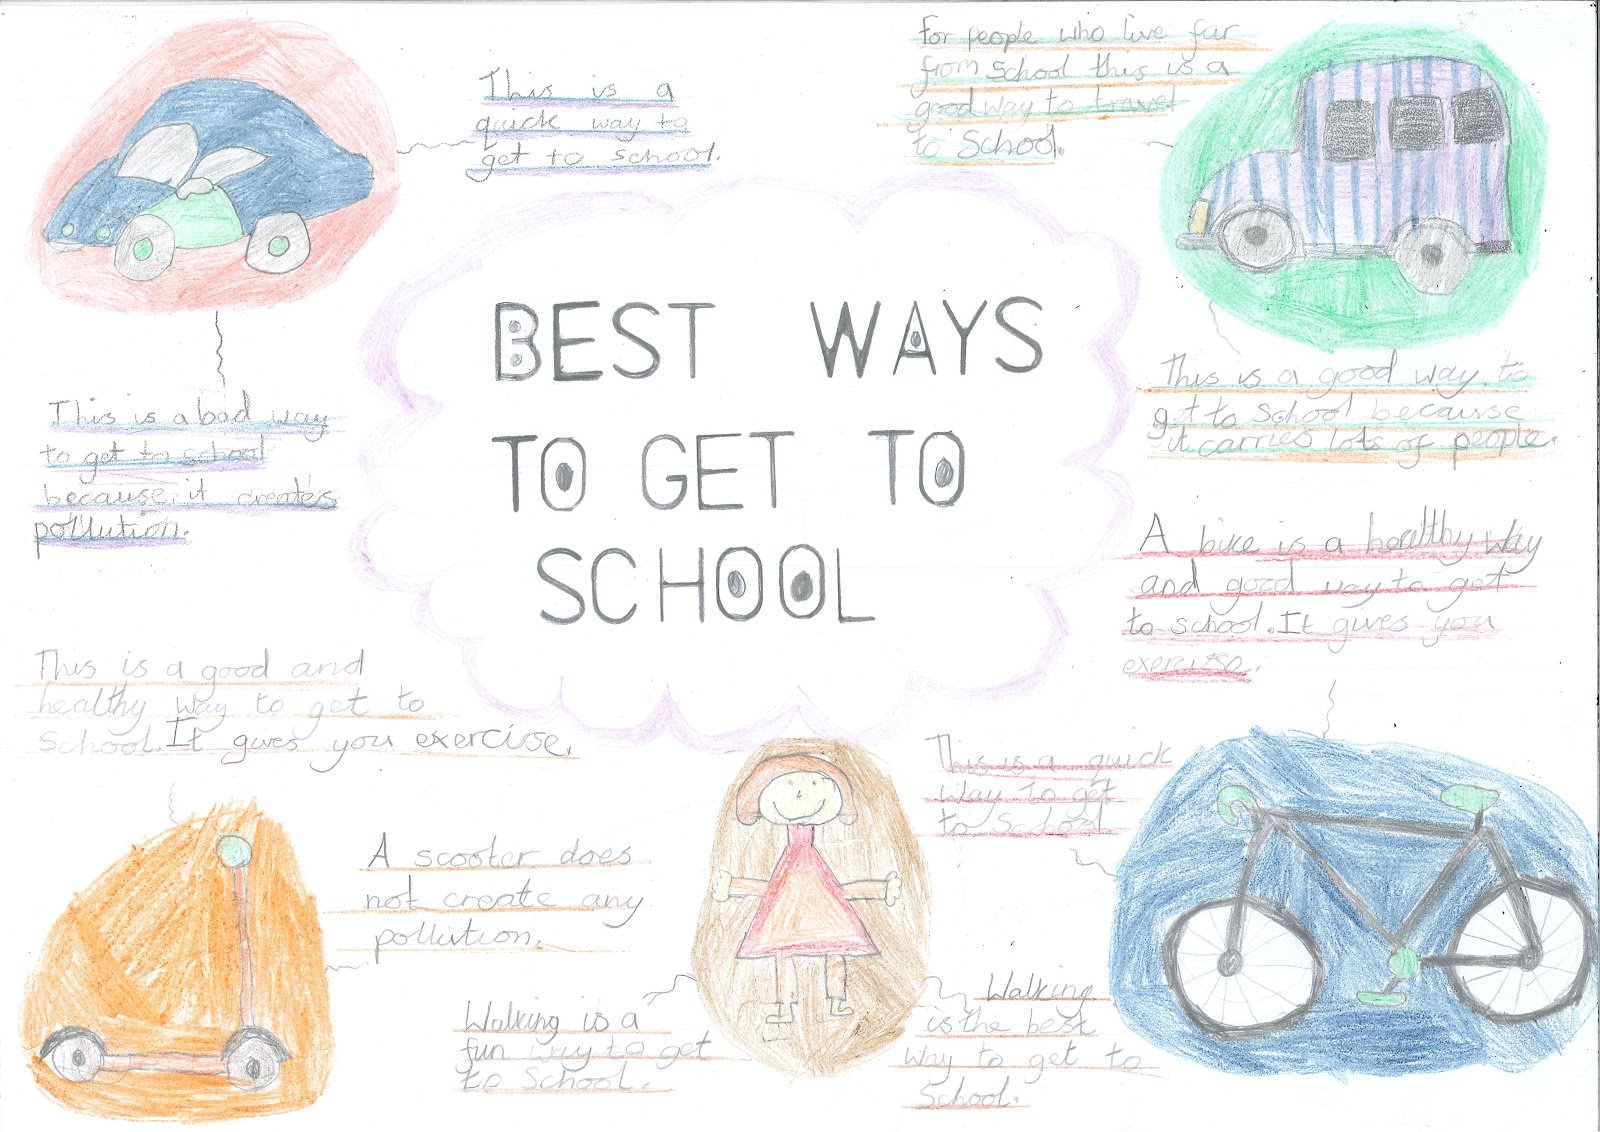 This is a
quick way to
get to school.
For people who live far
from School this is a
good way to travel
to School.
BEST WAYS
TO GET TO
SCHOOL
This is a bad way
to get to school
because it creates
pollution.
This is a good way to
get to School because
it carries lots of people.
A bike is a healthy way
and good way to get
to school. It gives you
exercise.
This is a good and
healthy way to get to
School. It gives you exercise.
This is a quick
way to get
to School
A scooter does
not create any
pollution.
Walking is a
fun way to get
to School.
Walking
is the best
way to get to
School.